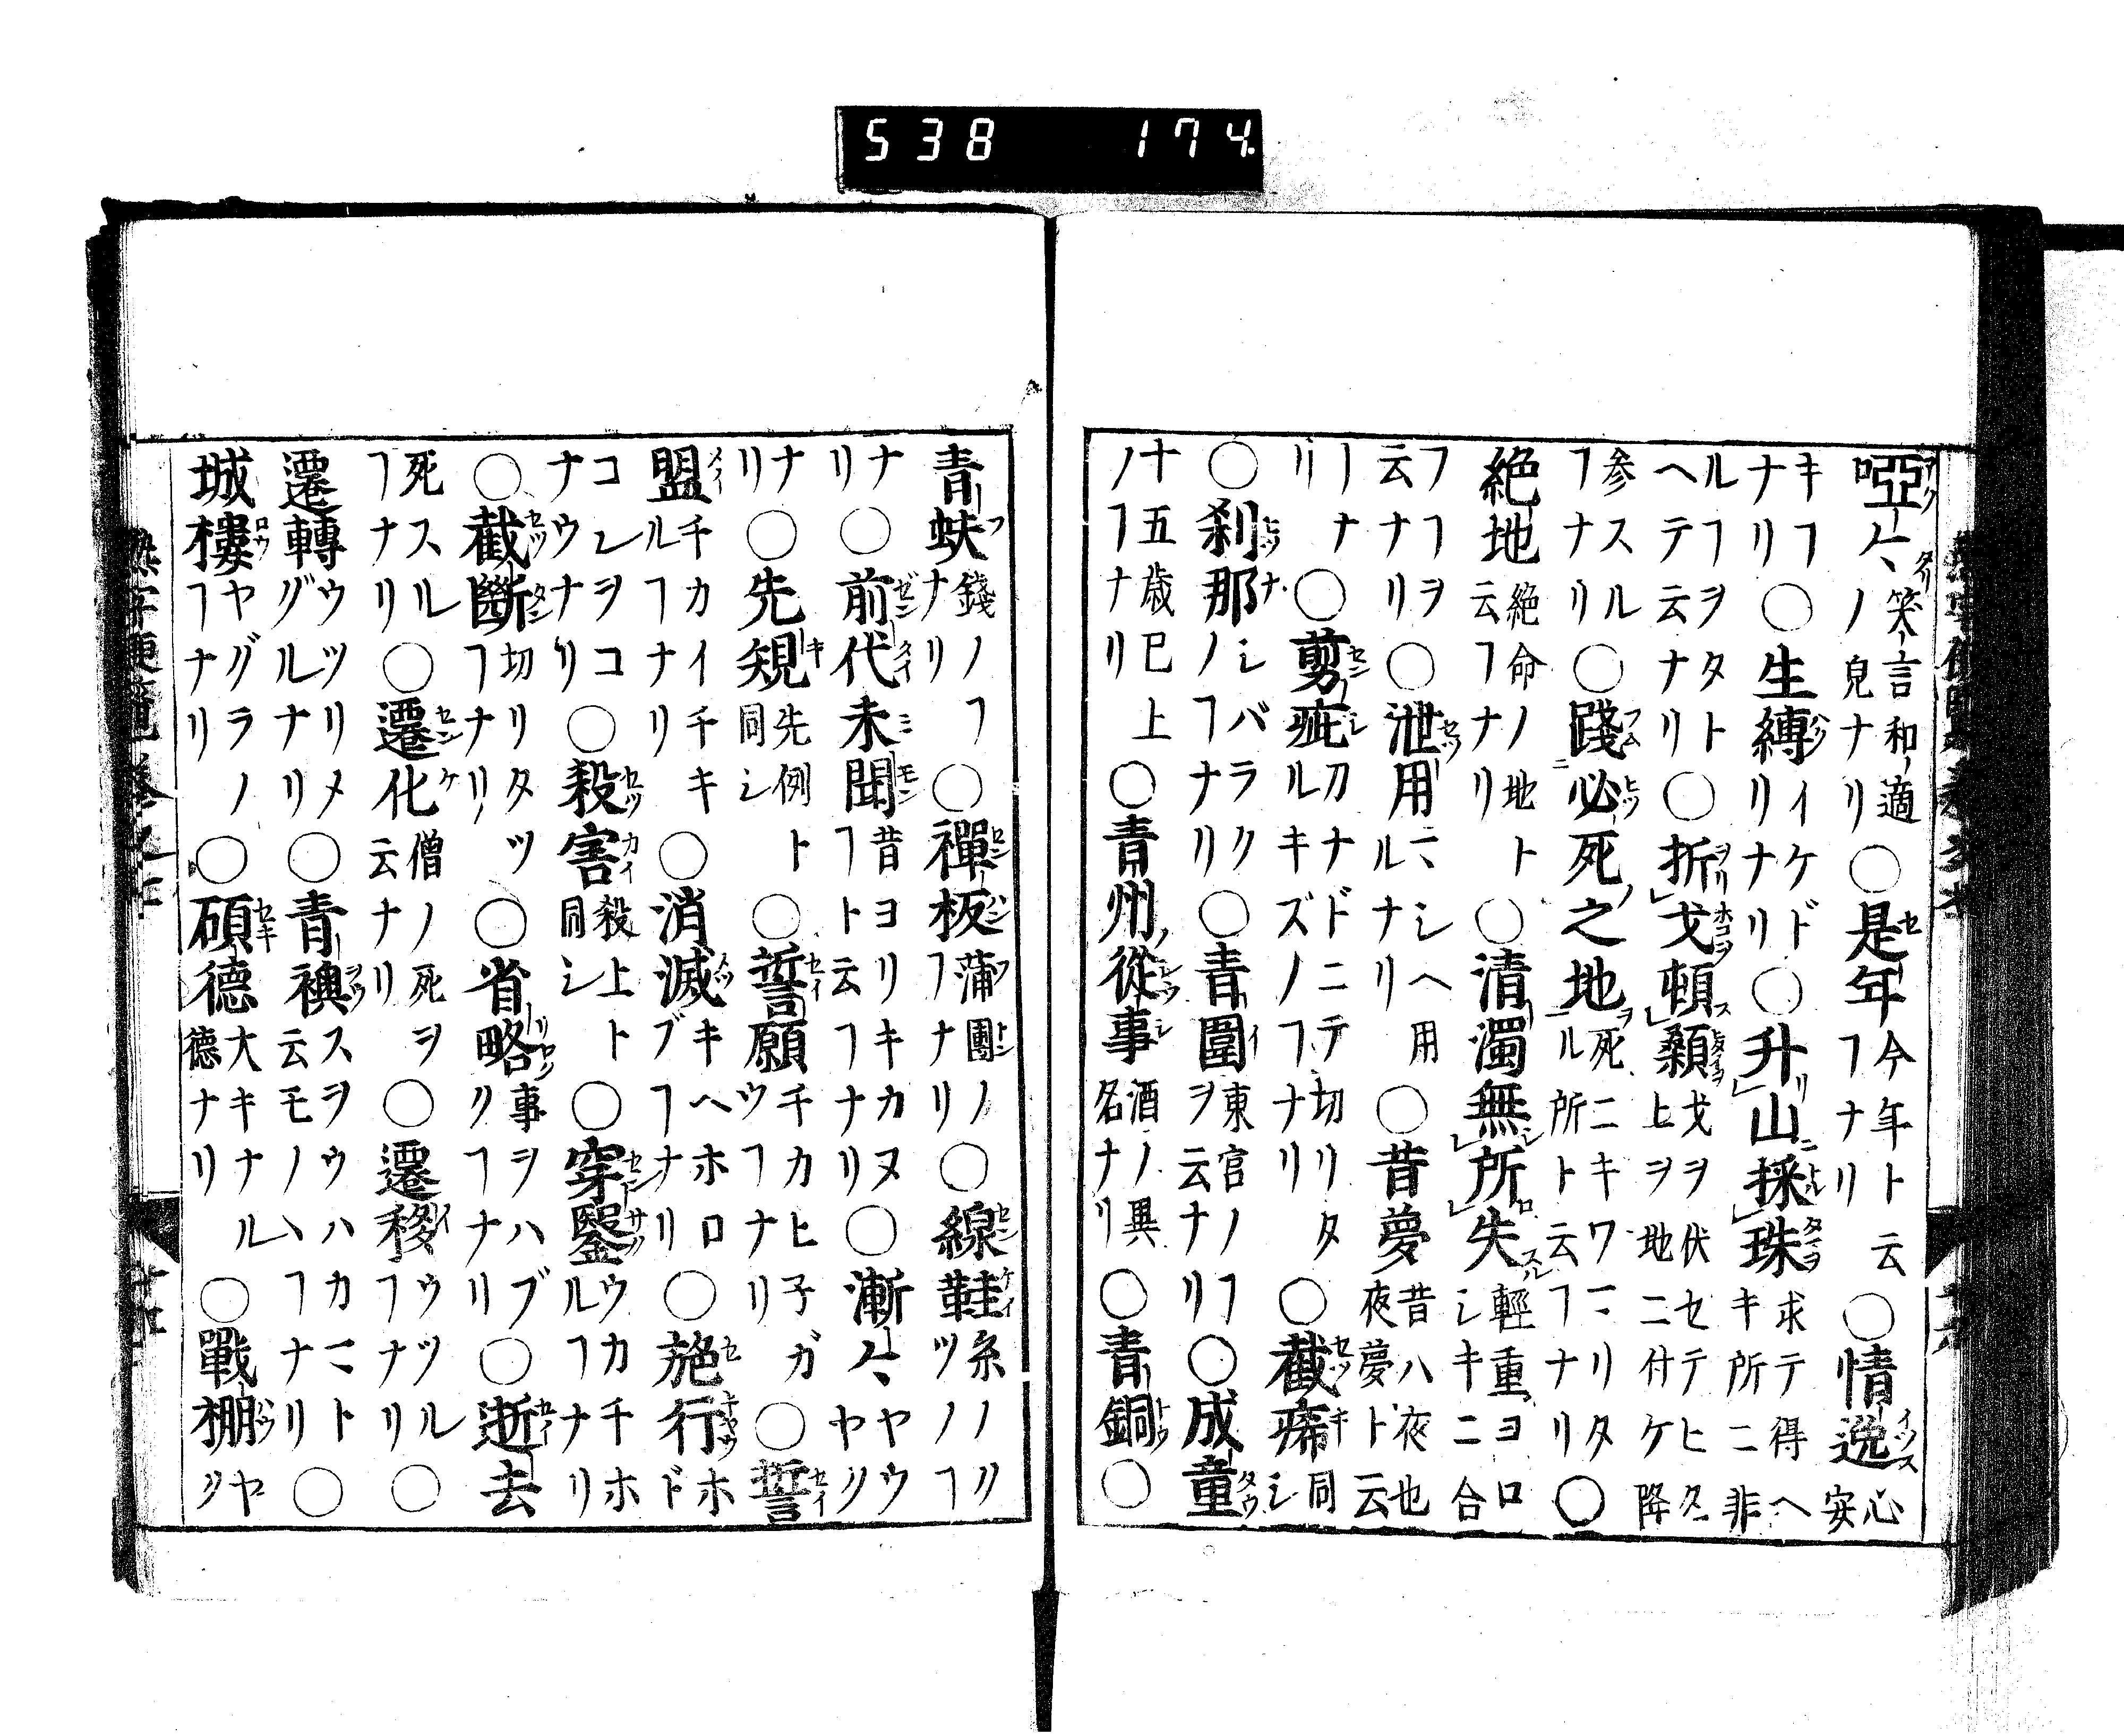 538 174
啞〻笑言和適ノ皃ナリ○是年今年ト云ヿナリ○情逸心安
キヿナリ○生縛イケドリナリ○升山採珠求テ得ヘキ所ニ非
ルヿヲタトヘテ云ナリ○折戈頓顙戈ヲ伏セテヒタニ上ヲ地ニ付ケ降
参スルヿナリ○踐必死之地死ニキワマリタル所ト云ヿナリ○
絶地絶命ノ地ト云ヿナリ○清濁無所失輕重ヨロシキニ合
フヿヲ云ナリ○泄用シヘ用ルナリ○昔夢昔ハ夜也夜夢ト云
ナリ○剪疵刀ナドニテ切リタルキズノヿナリ○截痏同シ
○刹那シバラクノヿナリ○青圍東宮ノヿヲ云ナリ○成童
十五歳已上ノヿナリ○青州從事酒ノ異名ナリ○青銅○
青蚨錢ノヿナリ○禪板蒲團ノヿナリ○線鞋糸ノクツノヿ
ナリ○前代未聞昔ヨリキカヌヿト云ヿナリ○漸〻ヤウヤク
ナリ○先規先例ト同シ○誓願チカヒ子ガウヿナリ○誓
盟チカイチキルヿナリ○消滅キヘホロブヿナリ○施行ホド
コレヲコナウナリ○殺害殺上ト同シ○穿鑿ウカチホルヿナリ
○截斷切リタツヿナリ○省略事ヲハブクヿナリ○逝去
死スルヿナリ○遷化僧ノ死ヲ云ナリ○遷移ウツルヿナリ○
遷轉ウツリメグルナリ○青襖スヲウハカマト云モノヽヿナリ○
城樓ヤグラノヿナリ○碩德大キナル德ナリ○戰棚ヤク